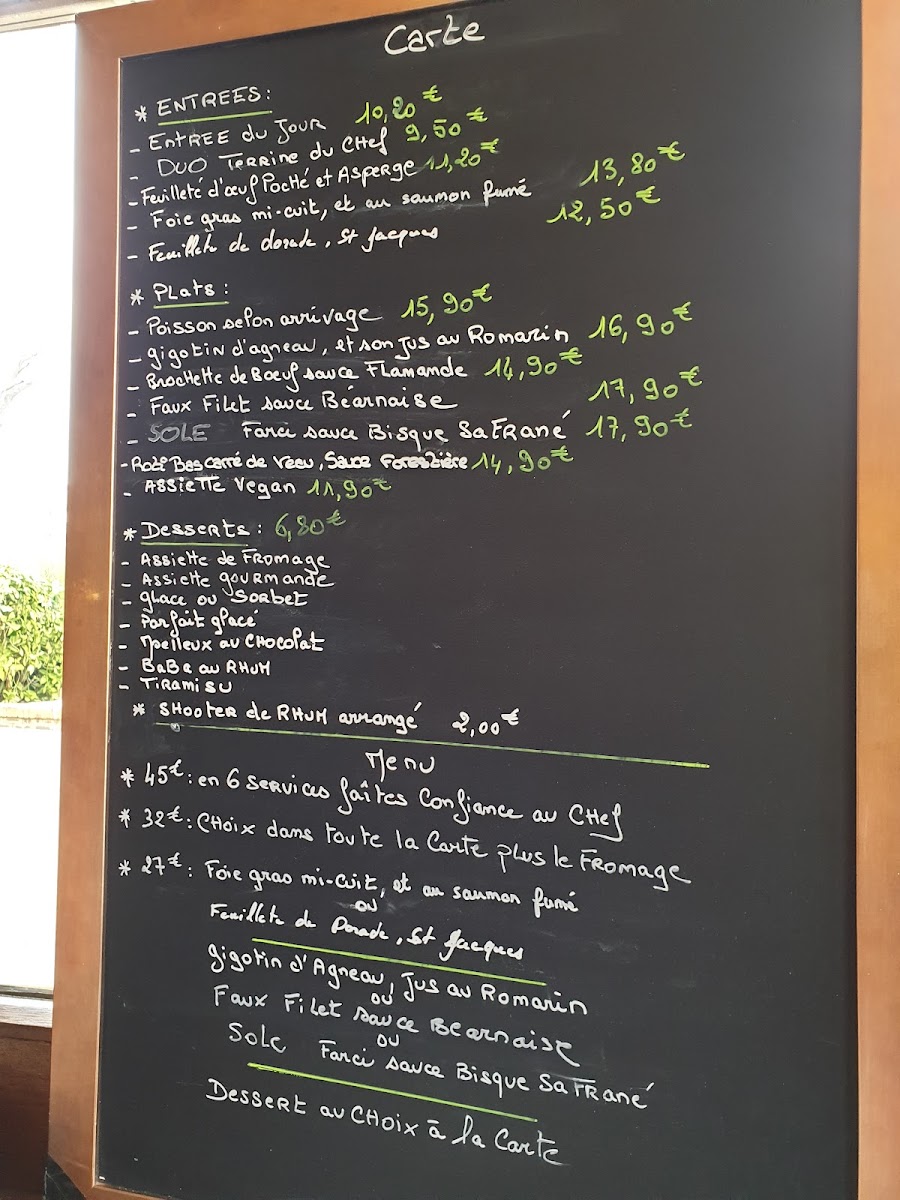 Carte
* ENTREES:
- ENTREE du JOUR 10,20€
- DUO Terrine du CHef 9,50€
- Feuilleté d'œuf Poché et Asperge 11,20€
- Foie gras mi-cuit, et au saumon fumé 13,80€
- Feuilleté de dorade, St Jacques 12,50€
* PLats:
- Poisson selon arrivage 15,90€
- gigotin d'agneau, et son jus au Romarin 16,90€
- Brochette de Boeuf sauce Flamande 14,90€
- Faux Filet sauce Béarnaise 17,90€
- SOLE Farci sauce Bisque Safrané 17,90€
- Roti Bas carré de Veau, Sauce Forestière 14,90€
- ASSiette Vegan 11,90€
* Desserts: 6,80€
- Assiette de Fromage
- Assiette gourmande
- glace ou Sorbet
- Parfait glacé
- Moelleux au CHocolat
- BaBa au RHUM
- Tiramisu
* SHooter de RHUM arrangé 2,00€
Menu
* 45€: en 6 services faîtes Confiance au CHef
* 32€: CHoix dans toute la Carte plus le Fromage
* 27€: Foie gras mi-cuit, et au saumon fumé
ou
Feuilleté de Dorade, St Jacques
gigotin d'Agneau, Jus au Romarin
ou
Faux Filet sauce Bearnaise
ou
Sole Farci sauce Bisque Safrané
Dessert au CHoix à la Carte